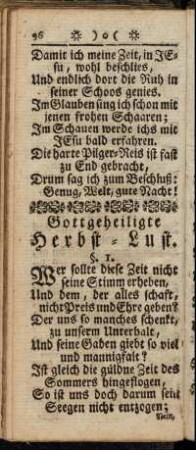 96 )o(
Damit ich meine Zeit, in JE-
su, wohl beschlies,
Und endlich dort die Ruh in
seiner Schoos genies.
Im Glauben sing ich schon mit
jenen frohen Schaaren;
Im Schauen werde ichs mit
JEsu bald erfahren.
Die harte Pilger-Reis ist fast
zu End gebracht,
Drum sag ich zum Beschluß:
Genug, Welt, gute Nacht!
Gottgeheiligte
Herbst-Lust.
§. 1.
Wer sollte diese Zeit nicht
seine Stimm erheben,
Und dem, der alles schaft,
nicht Preis und Ehre geben?
Der uns so manches schenkt,
zu unserm Unterhalt,
Und seine Gaben giebt so viel
und mannigfalt?
Ist gleich die güldne Zeit des
Sommers hingeflogen,
So ist uns doch darum sein
Seegen nicht entzogen;